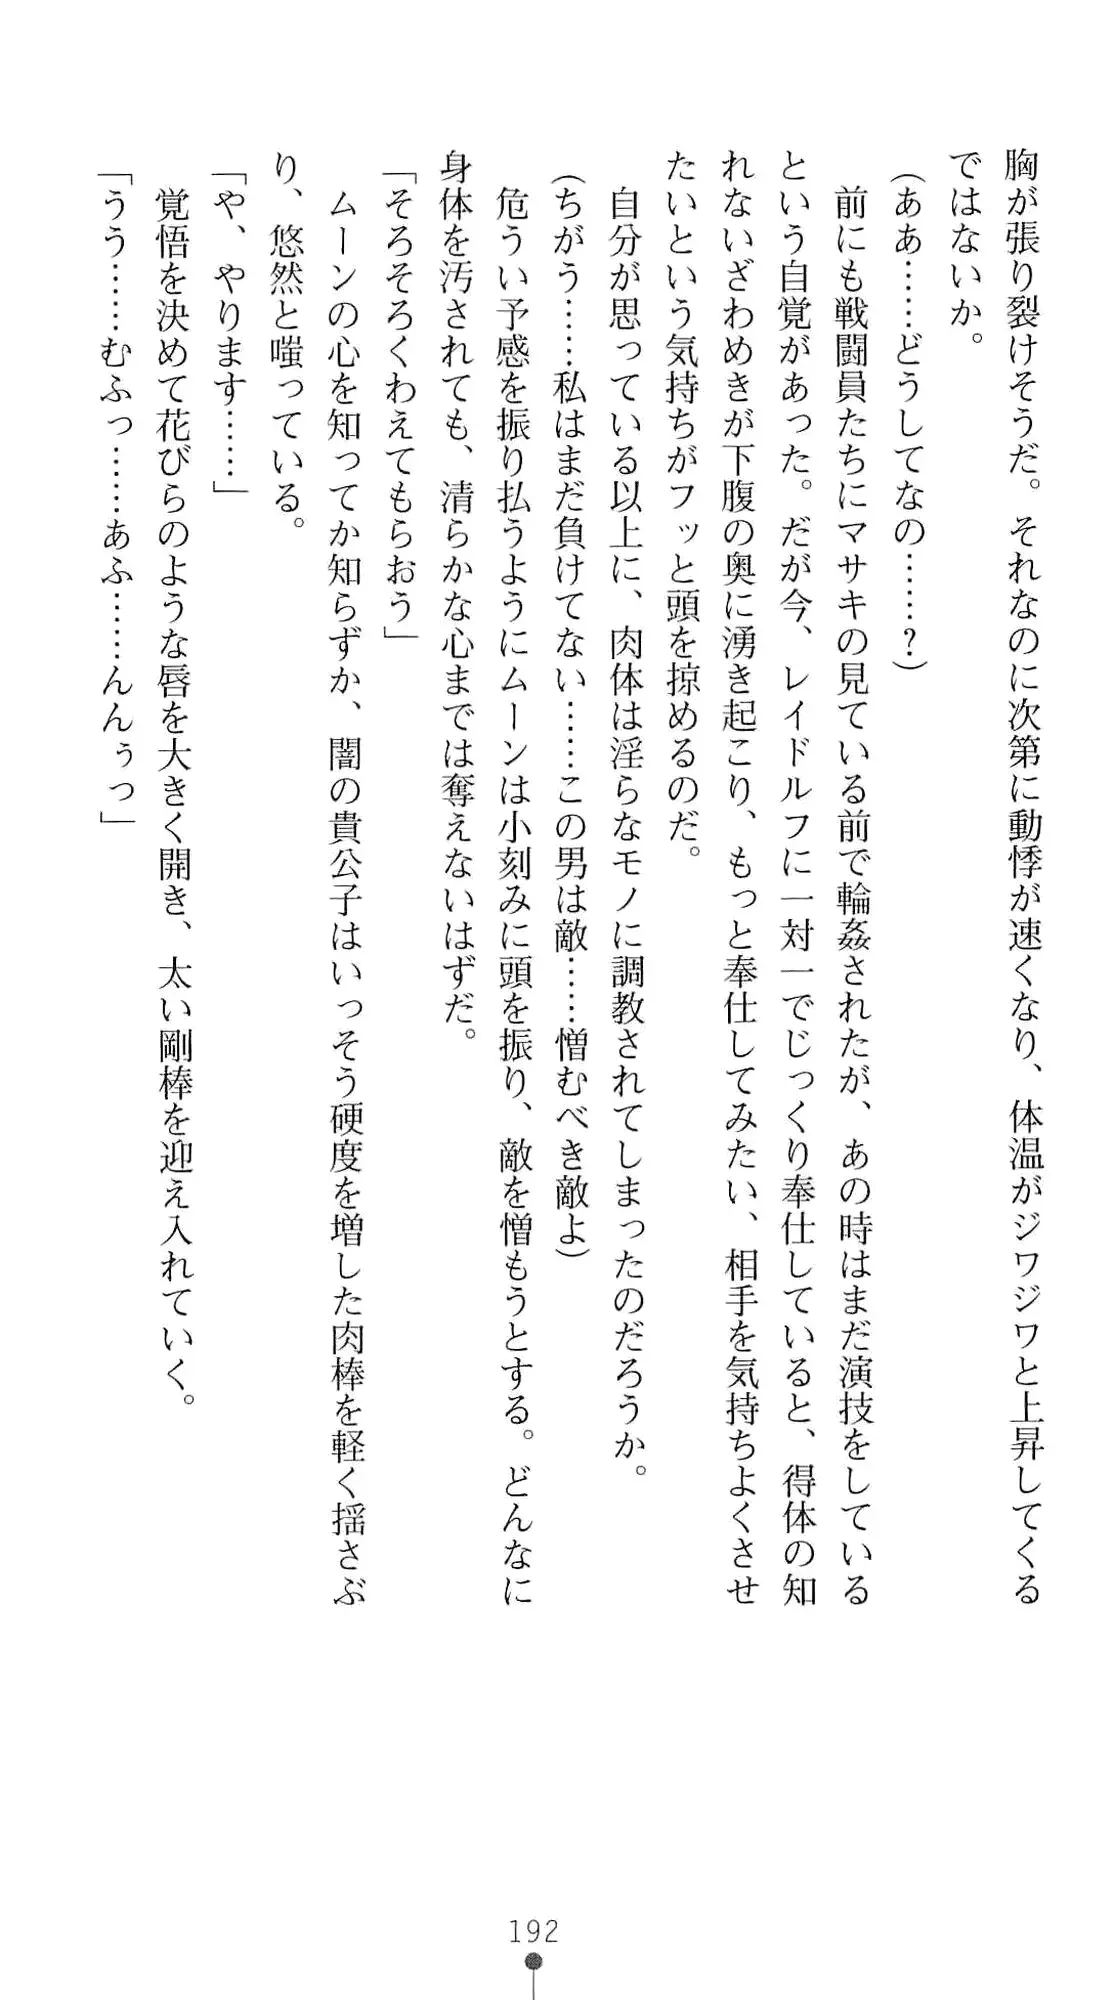 胸が張り裂けそうだ。それなのに次第に動悸が速くなり、体温がジワジワと上昇してくる
ではないか。
(ああ……どうしてなの……?)
前にも戦闘員たちにマサキの見ている前で輪姦されたが、あの時はまだ演技をしている
という自覚があった。だが今、レイドルフに一対一でじっくり奉仕していると、得体の知
れないざわめきが下腹の奥に湧き起こり、もっと奉仕してみたい、相手を気持ちよくさせ
たいという気持ちがフッと頭を掠めるのだ。
自分が思っている以上に、肉体は淫らなモノに調教されてしまったのだろうか。
(ちがう……私はまだ負けてない……この男は敵……憎むべき敵よ)
危うい予感を振り払うようにムーンは小刻みに頭を振り、敵を憎もうとする。どんなに
身体を汚されても、清らかな心までは奪えないはずだ。
「そろそろくわえてもらおう」
ムーンの心を知ってか知らずか、闇の貴公子はいっそう硬度を増した肉棒を軽く揺さぶ
り、悠然と嗤っている。
「や、やります……」
覚悟を決めて花びらのような唇を大きく開き、太い剛棒を迎え入れていく。
「うう……むふっ……あふ……んんぅっ」
192